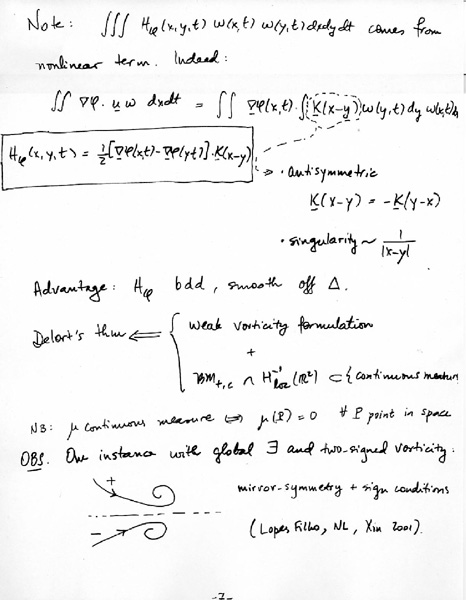 Note: ∭ H_φ(x,y,t) ω(x,t) ω(y,t) dxdydt comes from
nonlinear term. Indeed:
∬ ∇φ · u ω dxdt = ∬ ∇φ(x,t) · ∫ K(x-y) ω(y,t) dy ω(x,t) dx
H_φ(x,y,t) = ½ [∇φ(x,t) - ∇φ(y,t)] · K(x-y)
→ · antisymmetric
K(x-y) = -K(y-x)
· singularity ~ 1/|x-y|
Advantage: H_φ bdd, smooth off Δ.
Delort's thm ⟸ { weak vorticity formulation
+
BM_{+,c} ∩ H^{-1}_{loc}(ℝ²) ⊂ { continuous measures
NB: μ continuous measure ⟺ μ(P) = 0 ∀ P point in space
OBS. One instance with global ∃ and two-signed vorticity:
+
mirror-symmetry + sign conditions
−
(Lopes Filho, NL, Xin 2001).
-7-